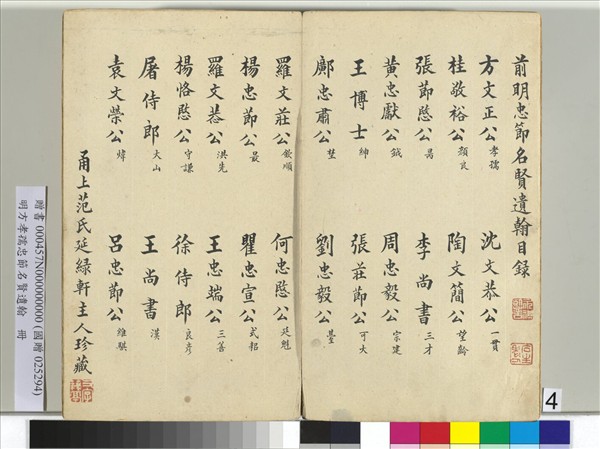 前明忠節名賢遺翰目錄
方文正公孝孺 沈文恭公一貫
桂敬裕公彥良 陶文簡公望齡
張節愍公昺 李尚書三才
黃忠獻公鉞 周忠毅公宗建
王博士紳 張莊節公可大
鄺忠肅公埜 劉忠毅公
羅文莊公欽順 何忠愍公廷魁
楊忠節公最 瞿忠宣公式耜
羅文恭公洪先 王忠端公三善
楊恪愍公守謙 徐侍郎良彥
屠侍郎大山 王尚書漢
袁文榮公煒 呂忠節公維祺
甬上范氏延綠軒主人珍藏
贈書 000457N000000000 (國贈 025294)
明方孝孺忠節名賢遺翰 冊
4